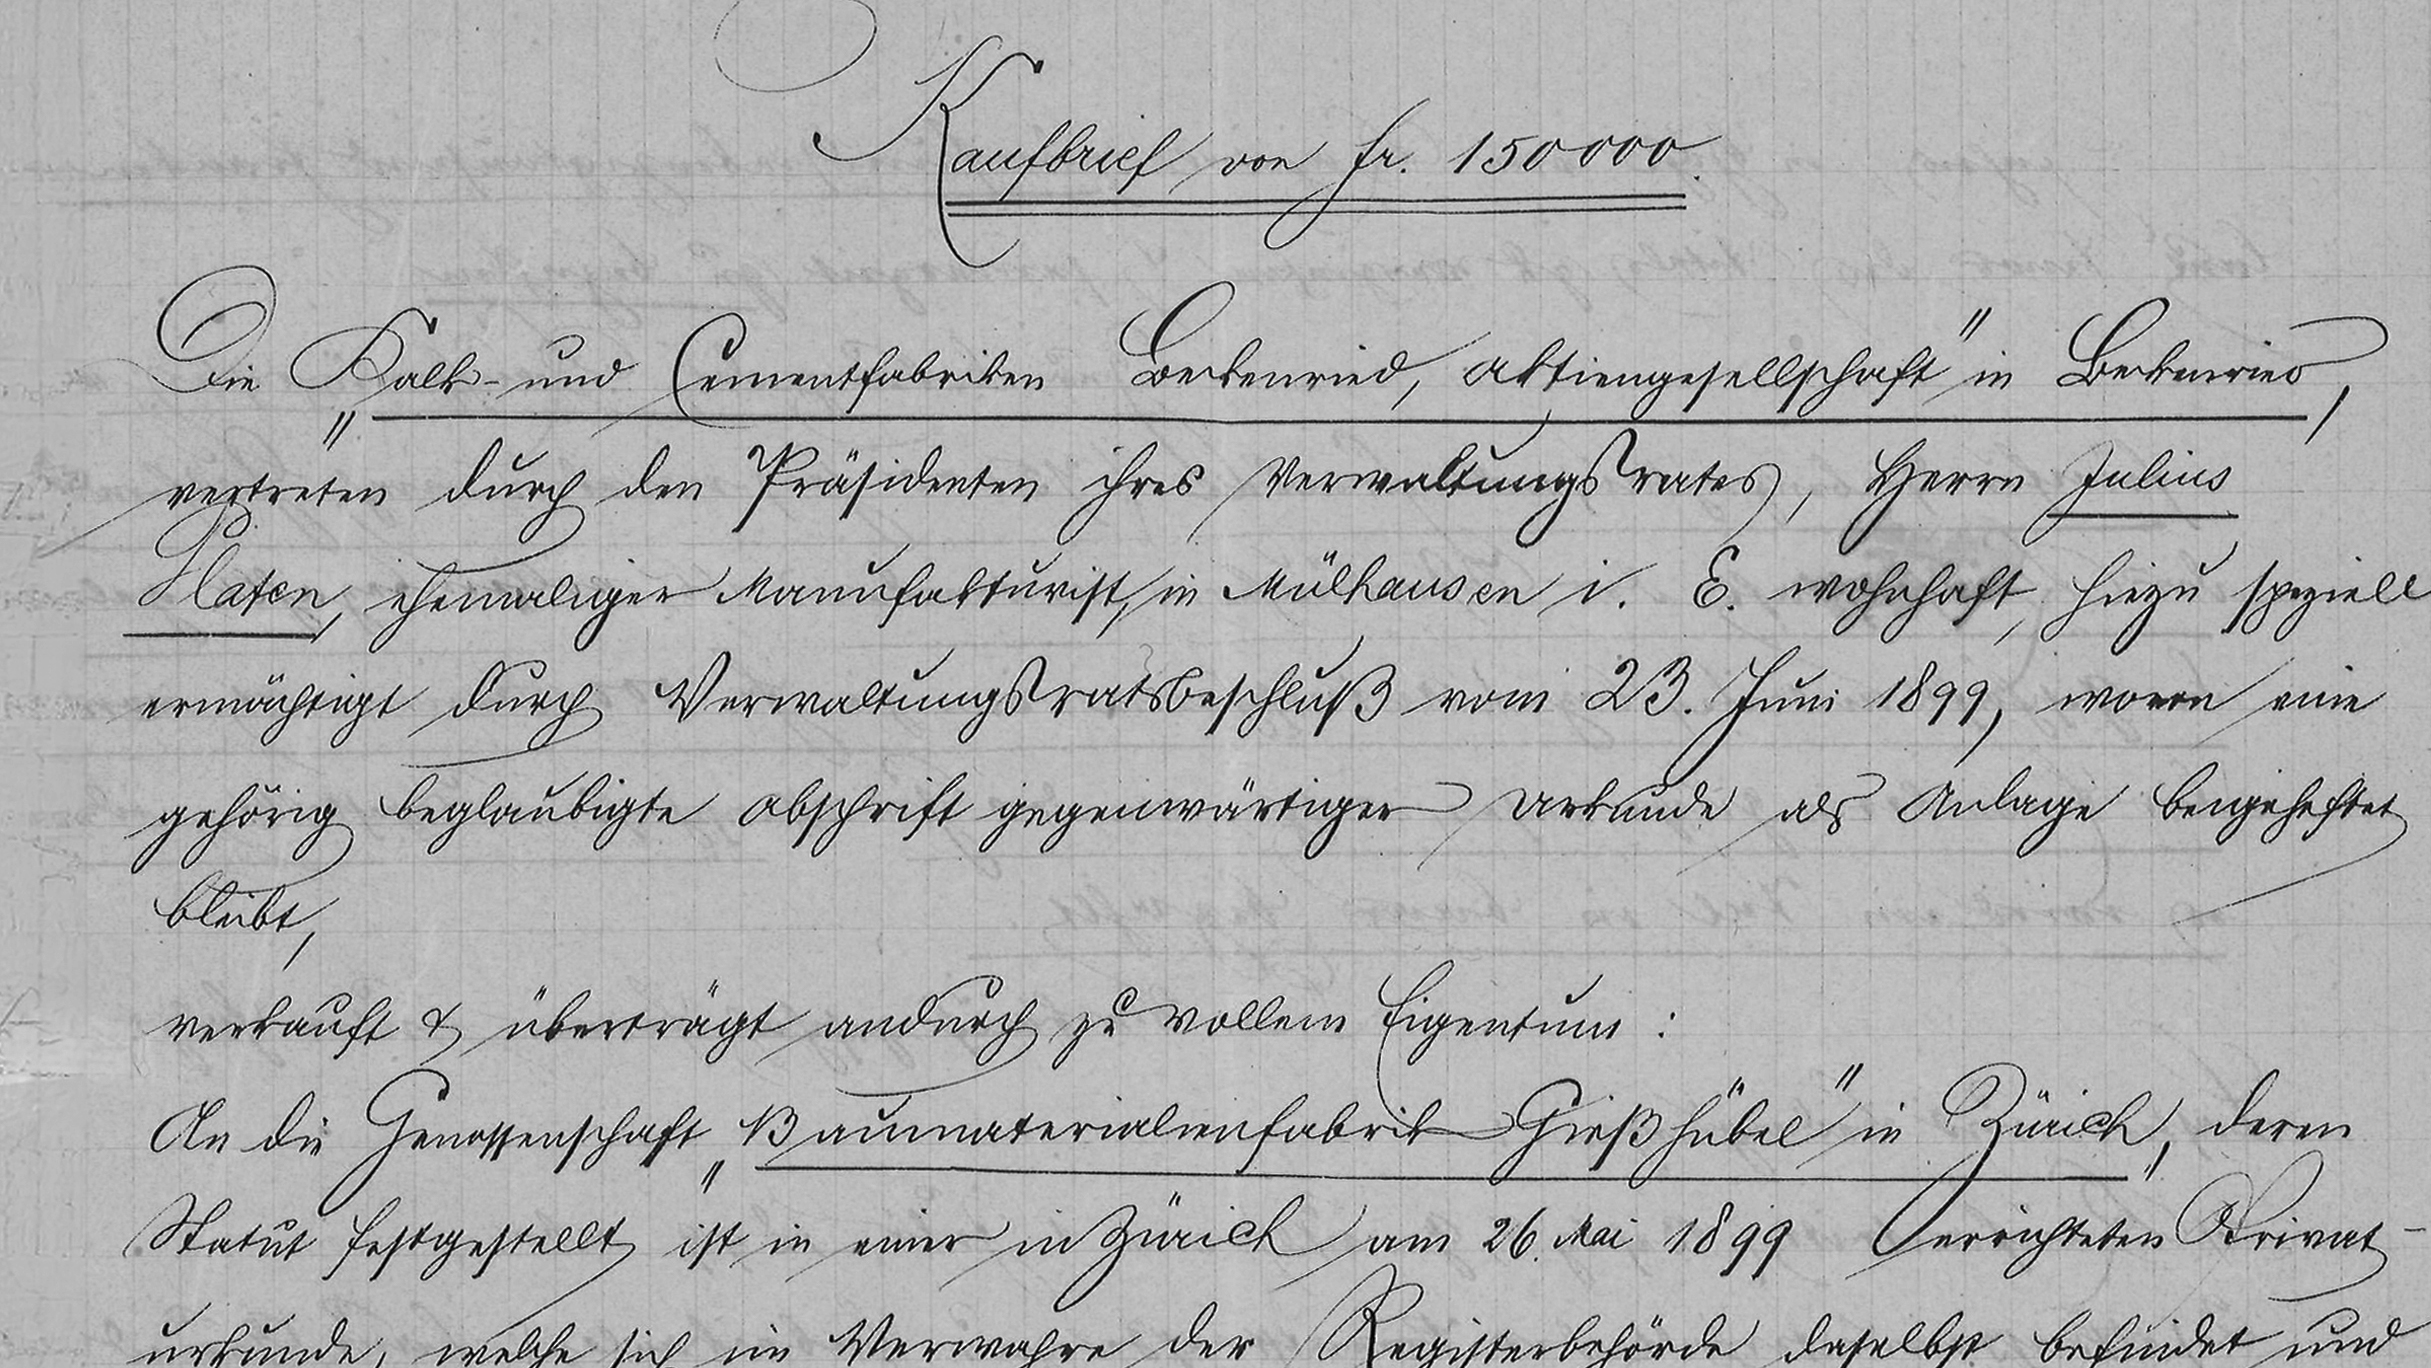 Kaufbrief von fr. 150000.
Die „Kalk- und Cementfabriken Beckenried, Aktiengesellschaft" in Beckenried,
vertreten durch den Präsidenten ihres Verwaltungsrates, Herrn Julius
Platen, ehemaliger Manufakturist, in Mülhausen i. E. wohnhaft, hiezu speziell
ermächtigt durch Verwaltungsratsbeschluß vom 23. Juni 1899, wovon eine
gehörig beglaubigte Abschrift gegenwärtiger Urkunde als Anlage beigeheftet
bleibt,
verkauft & überträgt andurch zu vollem Eigentum:
An die Genossenschaft „Baumaterialienfabrik Gießhübel" in Zürich, deren
Statut festgestellt ist in einer in Zürich am 26. Mai 1899 errichteten Privat-
urkunde, welche sich im Verwahre der Registerbehörde daselbst befindet und